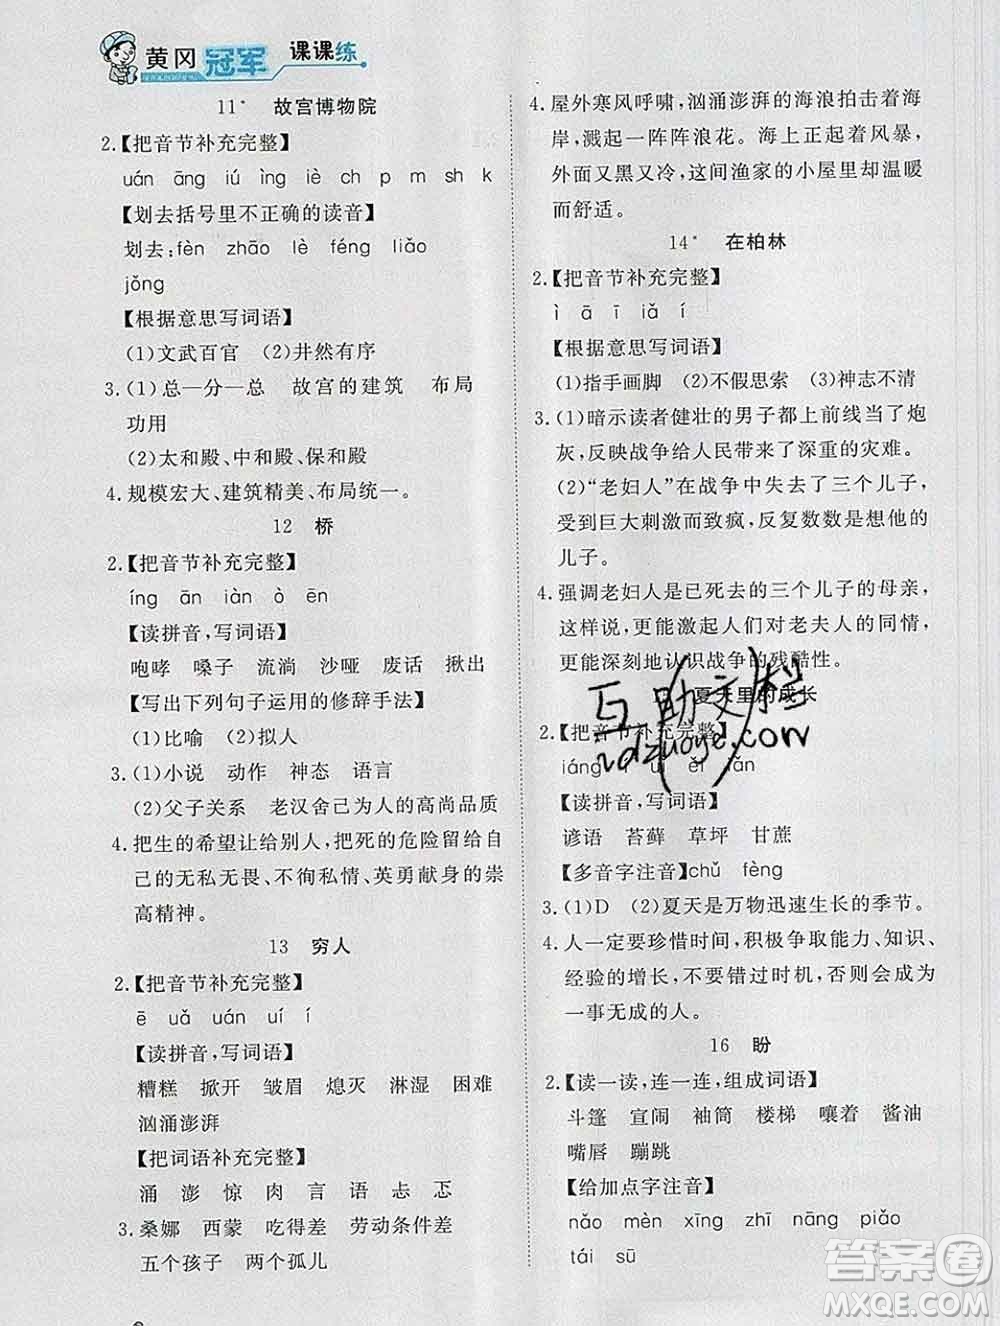 黄冈 冠军 课课练
11* 故宫博物院
2.【把音节补充完整】
uán āng iú ìng iè ch p m sh k
【划去括号里不正确的读音】
划去:fèn zhāo lè féng liǎo
jǒng
【根据意思写词语】
(1)文武百官 (2)井然有序
3.(1)总—分—总 故宫的建筑 布局
功用
(2)太和殿、中和殿、保和殿
4.规模宏大、建筑精美、布局统一。
12 桥
2.【把音节补充完整】
íng ān iàn ò ēn
【读拼音,写词语】
咆哮 嗓子 流淌 沙哑 废话 揪出
【写出下列句子运用的修辞手法】
(1)比喻 (2)拟人
3.(1)小说 动作 神态 语言
(2)父子关系 老汉舍己为人的高尚品质
4.把生的希望让给别人,把死的危险留给自
己的无私无畏、不徇私情、英勇献身的崇
高精神。
13 穷人
2.【把音节补充完整】
ē uǎ uán uí í
【读拼音,写词语】
糟糕 掀开 皱眉 熄灭 淋湿 困难
汹涌澎湃
【把词语补充完整】
涌 澎 惊 肉 言 语 忐 忑
3.桑娜 西蒙 吃得差 劳动条件差
五个孩子 两个孤儿
4.屋外寒风呼啸,汹涌澎湃的海浪拍击着海
岸,溅起一阵阵浪花。海上正起着风暴,
外面又黑又冷,这间渔家的小屋里却温暖
而舒适。
14* 在柏林
2.【把音节补充完整】
ì ā ī iǎ í
【根据意思写词语】
(1)指手画脚 (2)不假思索 (3)神志不清
3.(1)暗示读者健壮的男子都上前线当了炮
灰,反映战争给人民带来了深重的灾难。
(2)“老妇人”在战争中失去了三个儿子,
受到巨大刺激而致疯,反复数数是想他的
儿子。
4.强调老妇人是已死去的三个儿子的母亲,
这样说,更能激起人们对老夫人的同情,
更能深刻地认识战争的残酷性。
夏天里的成长
2.【把音节补充完整】
iáng ěi ǎn
【读拼音,写词语】
谚语 苔藓 草坪 甘蔗
【多音字注音】chǔ fèng
3.(1)D (2)夏天是万物迅速生长的季节。
4.人一定要珍惜时间,积极争取能力、知识、
经验的增长,不要错过时机,否则会成为
一事无成的人。
16 盼
2.【读一读,连一连,组成词语】
斗篷 宣闹 袖筒 楼梯 嚷着 酱油
嘴唇 蹦跳
【给加点字注音】
nǎo mèn xīng zhī nāng piǎo
tái sū
互助文栏
答案圈
MXQE.COM